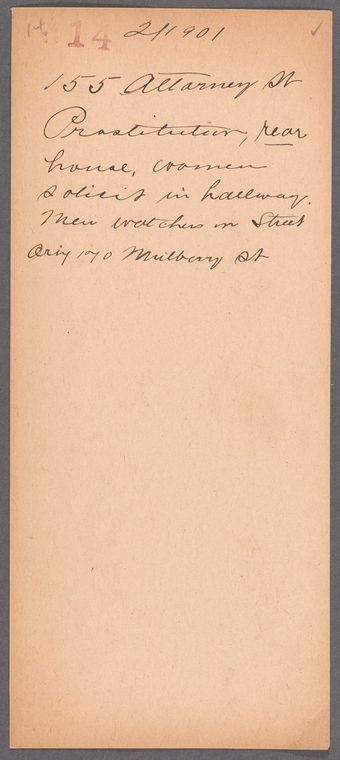 14 14 2/1901 ✓
155 Attorney St
Prostitution, rear
house, women
solicit in hallway.
Men watchers on Street
Orig 170 Mulberry St